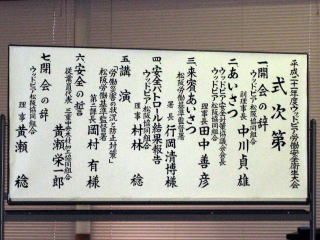 平成二十二年度ウッドピア労働安全衛生大会
式次第
一 開会の辞
ウッドピア松阪協同組合
副理事長 中川貞雄
二 あいさつ
ウッドピア安全対策協議会会長
ウッドピア松阪協同組合
理事長 田中善彦
三 来賓あいさつ
松阪労働基準監督署
署長 行岡清博様
四 安全パトロール結果報告
ウッドピア松阪協同組合
理事 村林稔
五 講演
「労働災害の状況と防止対策」
松阪労働基準監督署
第二課長 岡村有様
六 安全の誓
従業員代表
黄瀬栄一郎
七 閉会の辞
ウッドピア松阪協同組合
理事 黄瀬稔